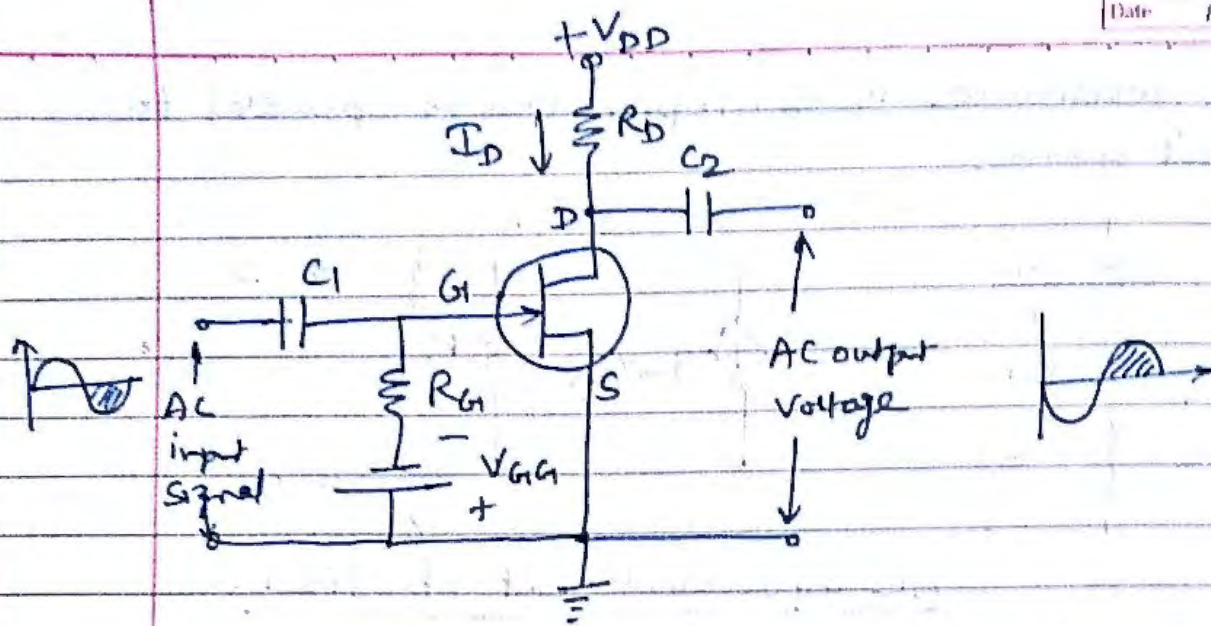 Date
+VDD
ID
RD
C2
D
C1
G
S
AC
input
signal
RG
-
VGG
+
AC output
Voltage